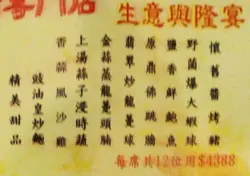 專門店
生意興隆宴
懷舊醬烤豬
野菌爆大蝦球
鹽香鮮鮑魚
原鼎佛跳牆
翡翠炒龍蔓球
金絲蒸龍蔓頭腩
上湯蒜子浸時蔬
香蒜風沙雞
豉油皇炒麵
精美甜品
每席共12位用$4388